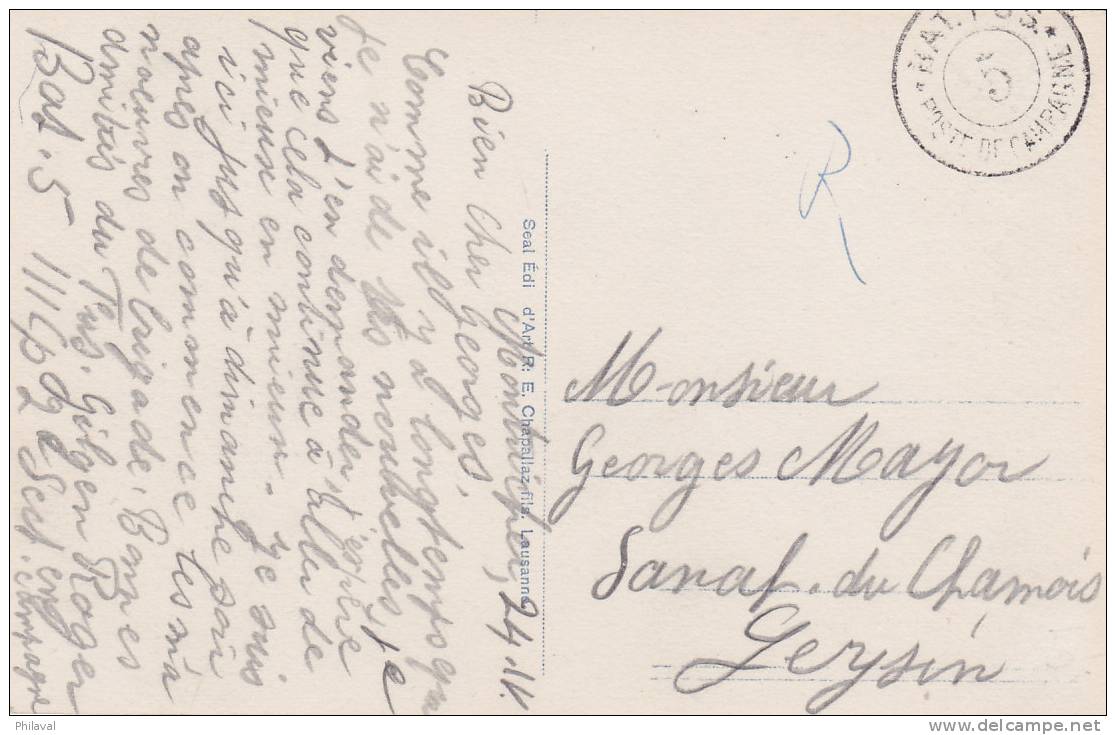 Montvipre, 24.11.
Bien cher Georges,
Comme il y a longtemps que
je n'ai de tes nouvelles, je
viens t'en demander. J'espère
que cela continue à aller de
mieux en mieux. Je suis
ici jusqu'à dimanche soir
après on commence les ma
noeuvres de brigade. Bonnes
amitiés du Fus. Gilgen Roger
Bat. 5 III/Cp 2e Sect. en
campagne
Seal Édi d'Art R: E. Chapallaz fils. Lausanne
BAT. FUS.
5
POSTE DE CAMPAGNE
R
Monsieur
Georges Mayor
Sanat. du Chamois
Leysin
Philaval
www.delcampe.net